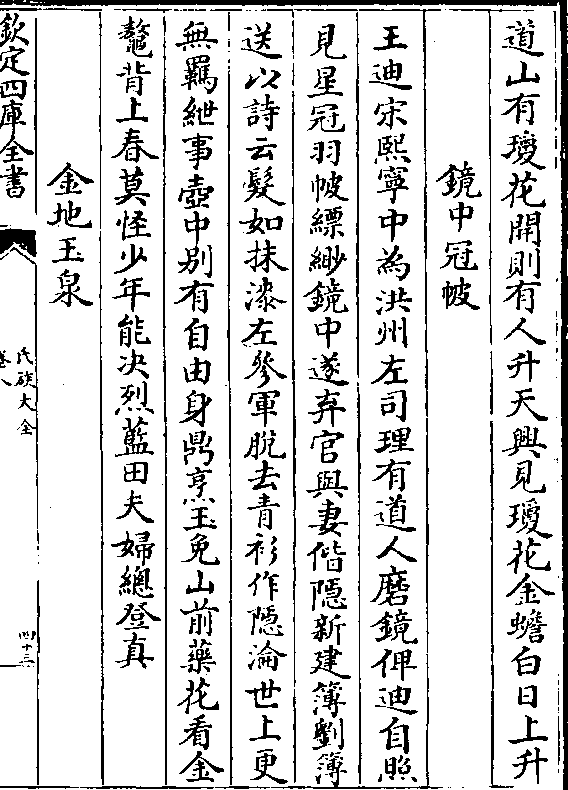 道山有瓊花開則有人升天興見瓊花金蟾白日上升
鏡中冠帔
王迪宋熙寧中為洪州左司理有道人磨鏡俾迪自照
見星冠羽帔縹緲鏡中遂弃官與妻偕隠新建簿劉簿
送以詩云髮如抹漆左參軍脫去青衫作隠淪世上更
無羈紲事壺中别有自由身鼎烹玉兔山前藥花看金
鼇背上春莫怪少年能决烈藍田夫婦總登真
金地玉泉
欽定四庫全書
氏族大全
卷八
四十三